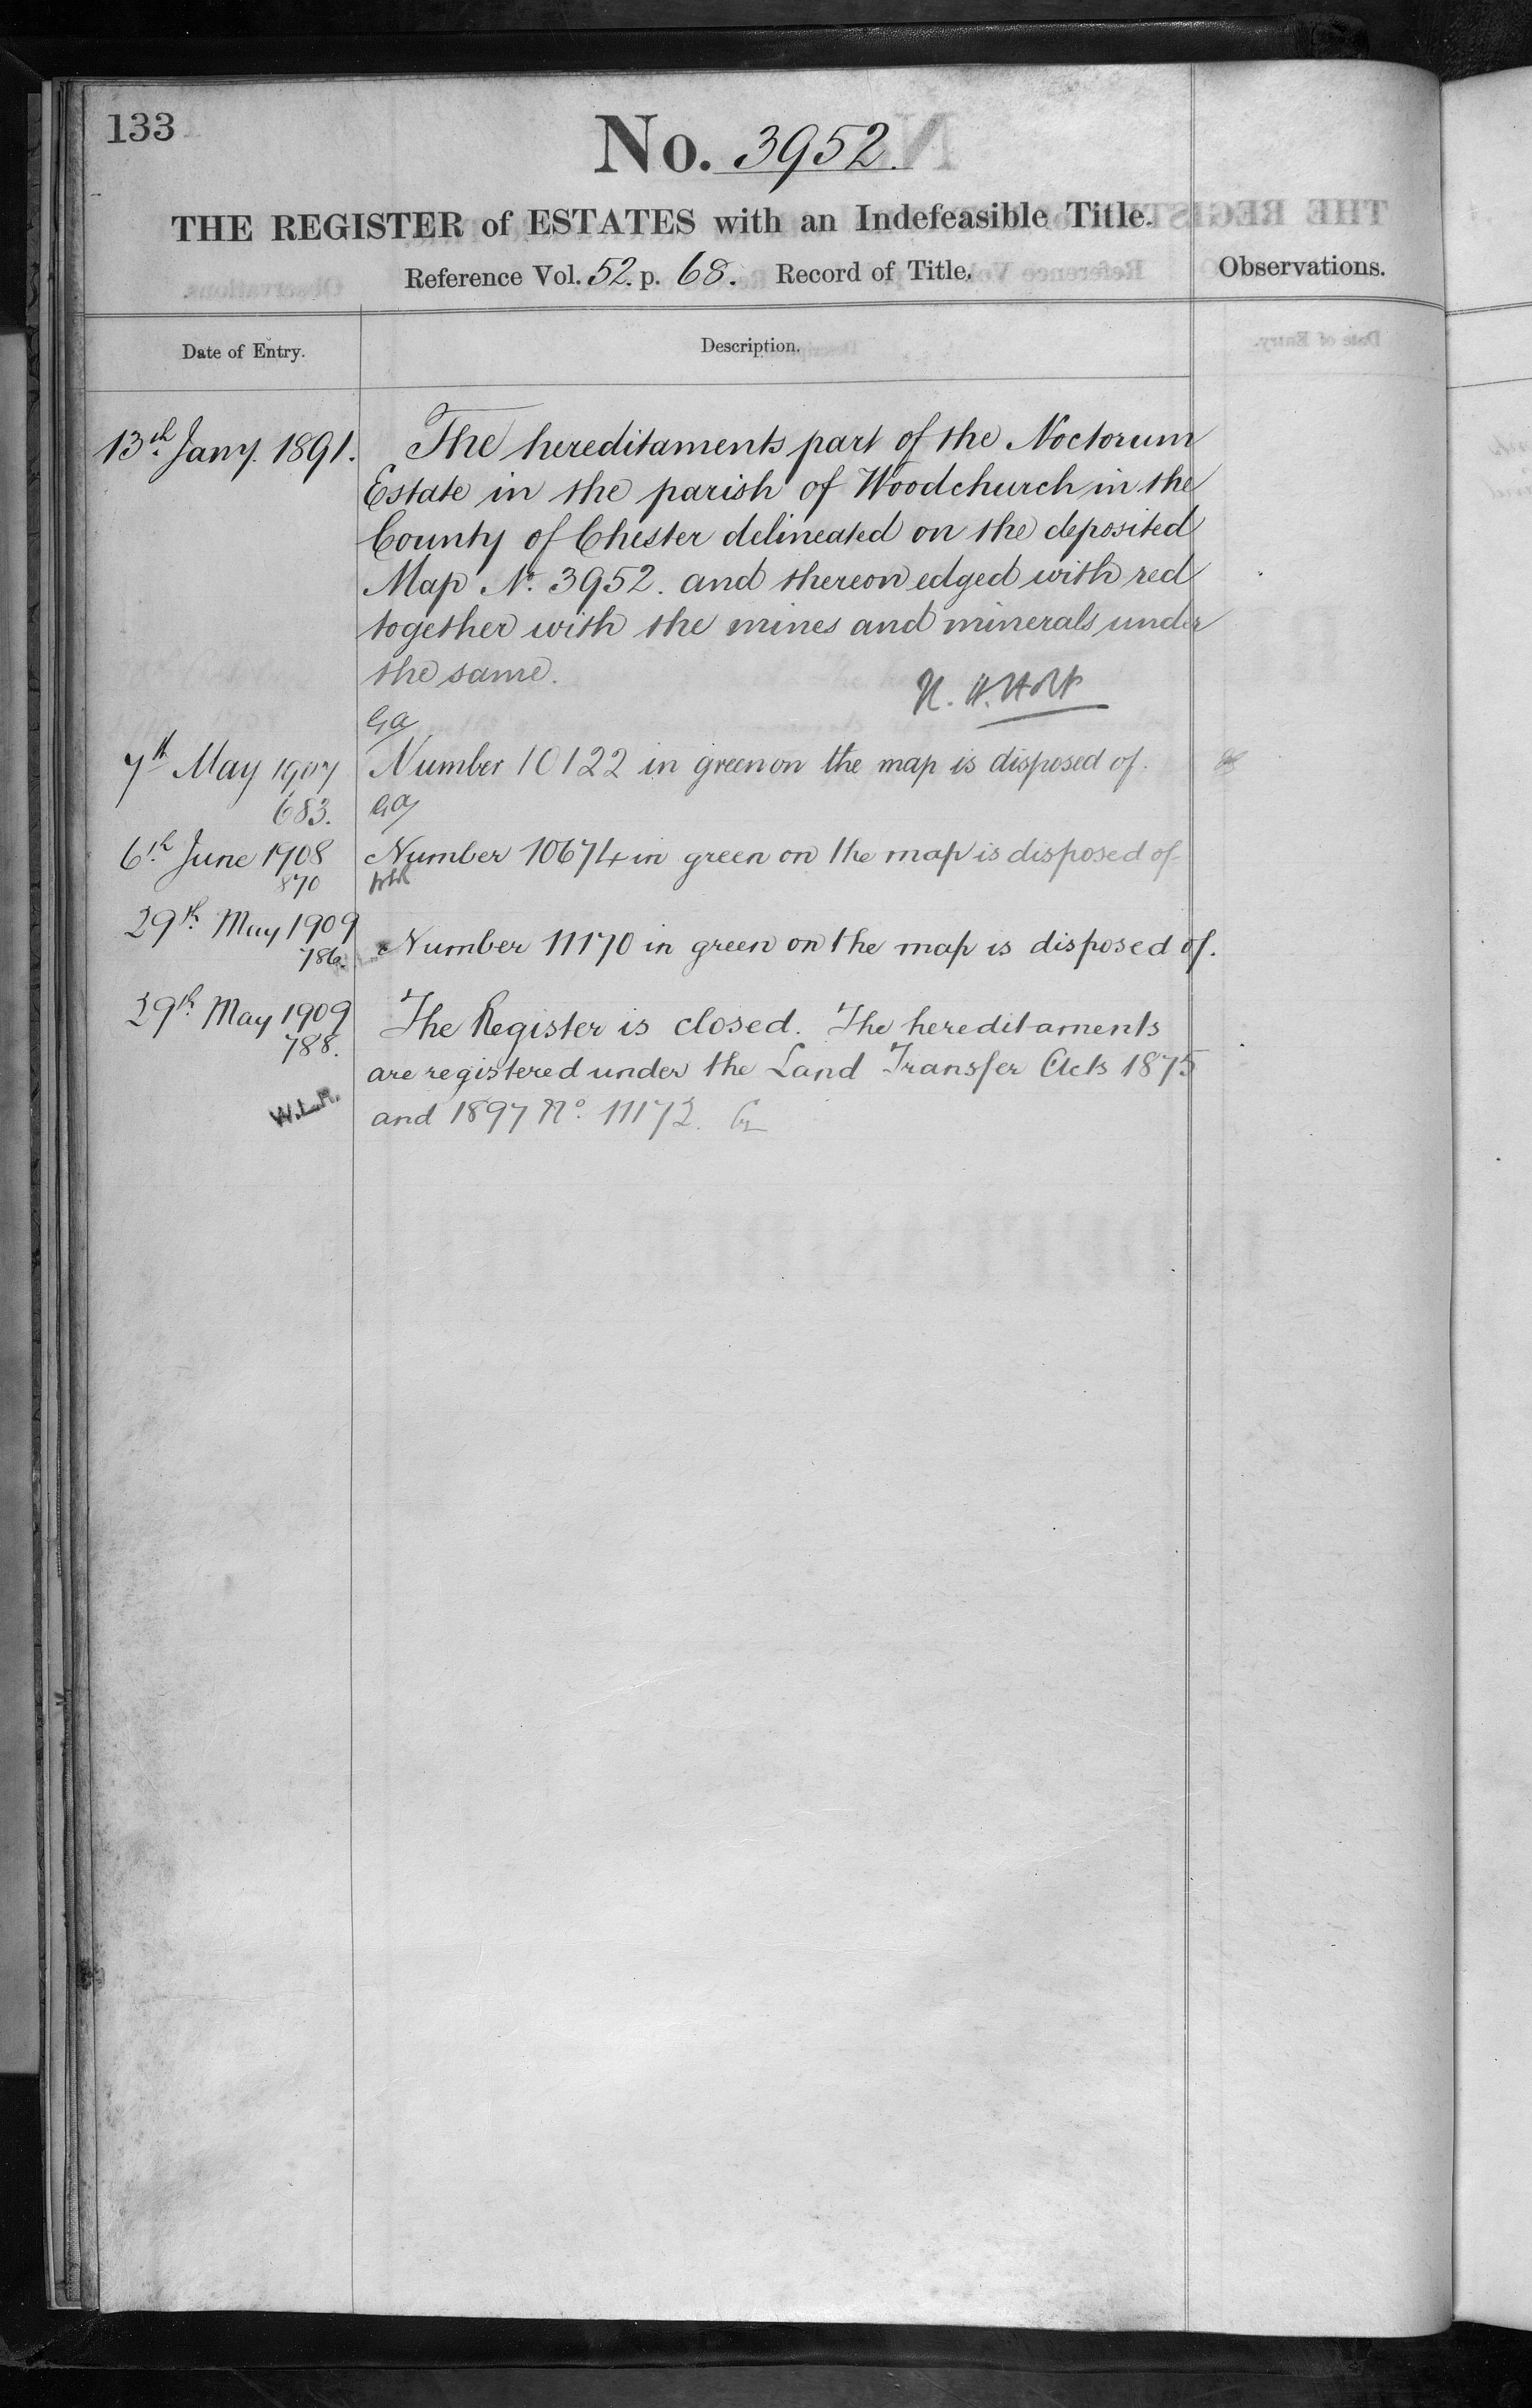 133
No. 3952.
THE REGISTER of ESTATES with an Indefeasible Title.
Reference Vol. 52. p. 68. Record of Title.
Observations.
Date of Entry.
Description.
13th Jany. 1891.
The hereditaments part of the Noctorum
Estate in the parish of Woodchurch in the
County of Chester delineated on the deposited
Map No. 3952. and thereon edged with red
together with the mines and minerals under
the same.
7th May 1907
683.
Number 10122 in green on the map is disposed of.
6th June 1908
870
Number 10674 in green on the map is disposed of
29th May 1909
786.
Number 11170 in green on the map is disposed of.
29th May 1909
788.
The Register is closed. The hereditaments
are registered under the Land Transfer Acts 1875
W.L.R.
and 1897 No. 11172.